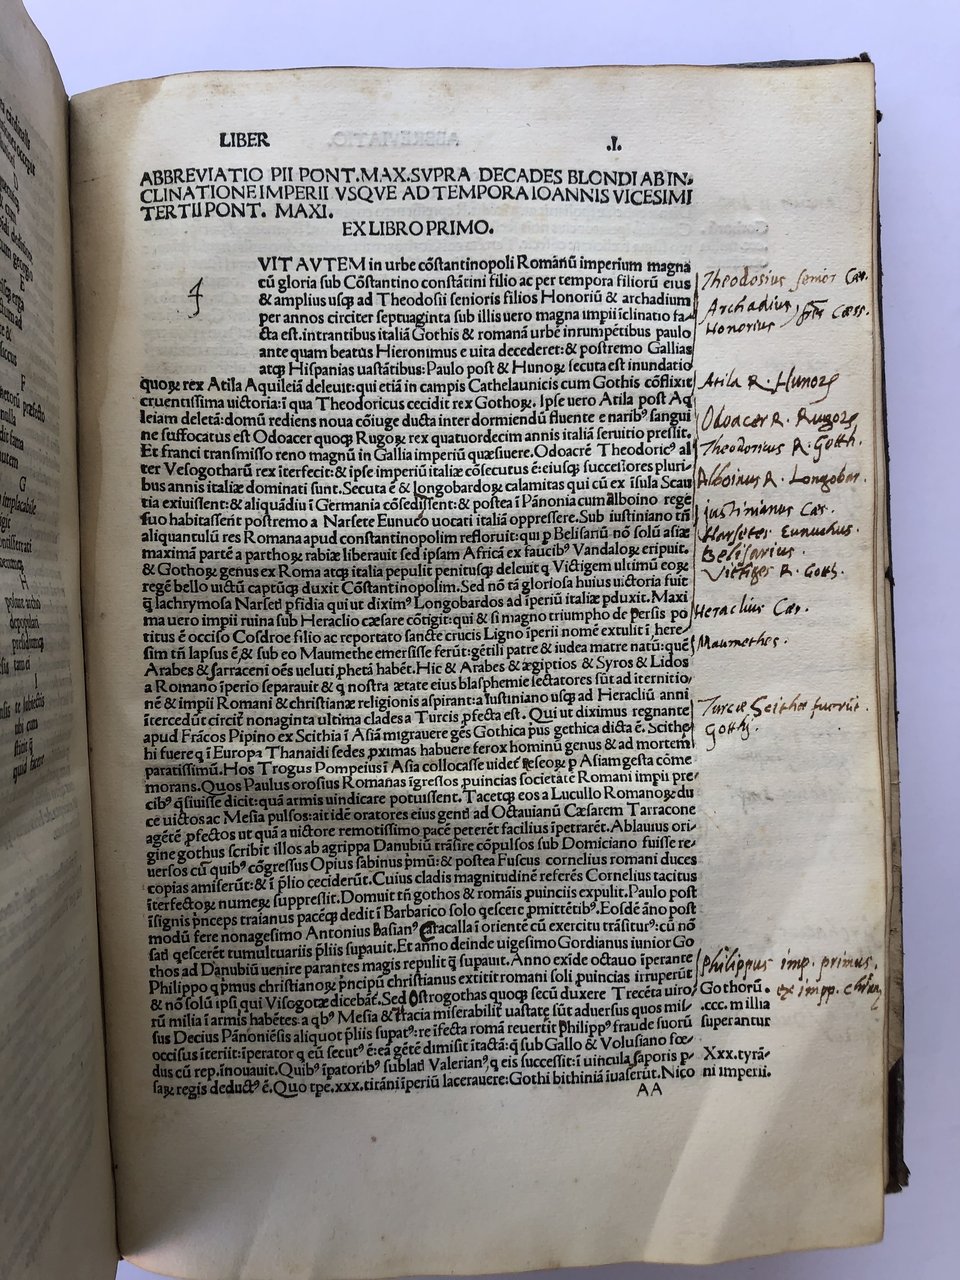 LIBER .I.
ABBREVIATIO PII PONT.MAX.SVPRA DECADES BLONDI AB IN-
CLINATIONE IMPERII VSQVE AD TEMPORA IOANNIS VICESIMI
TERTII PONT. MAXI.
EX LIBRO PRIMO.
VIT AVTEM in urbe cōstantinopoli Romanū imperium magna
cū gloria sub Cōstantino constātini filio ac per tempora filiorū eius
& amplius usq; ad Theodosii senioris filios Honoriū & archadium
per annos circiter septuaginta sub illis uero magna impii īclinatio fa-
cta est. intrantibus italiā Gothis & romanā urbē inrumpētibus paulo
ante quam beatus Hieronimus e uita decederet: & postremo Gallias
atq; Hispanias uastātibus: Paulo post & Hunoꝝ secuta est inundatio
quoꝝ rex Atila Aquileiā deleuit: qui etiā in campis Cathelaunicis cum Gothis cōflixit
cruentissima uictoria: ī qua Theodoricus cecidit rex Gothoꝝ. Ipse uero Atila post Aq
leiam deletā: domū rediens noua cōiuge ducta inter dormiendū fluente e naribꝰ sangui
ne suffocatus est Odoacer quoq; Rugoꝝ rex quatuordecim annis italiā seruitio pressit.
Et franci transmisso reno magnū in Gallia imperiū quæsiuere. Odoacrē Theodoricꝰ al
ter Vesogotharū rex īterfecit: & ipse imperiū italiæ cōsecutus ē: eiusq; successores pluri-
bus annis italiæ dominati sunt. Secuta ē & longobardoꝝ calamitas qui cū ex īsula Scan
tia exiuissent: & aliquādiu ī Germania cōsedissent: & postea ī Pānonia cum alboino rege
suo habitassent postremo a Narsete Eunuco uocati italiā oppressere. Sub iustiniano tñ
aliquantulū res Romana apud constantinopolim refloruit: qui p Belisariū nō solū asiæ
maximā partē a parthoꝝ rabiæ liberauit sed ipsam Africā ex faucibꝰ Vandaloꝝ eripuit.
& Gothoꝝ genus ex Roma atq; italia pepulit penitusq; deleuit q Victigem ultimū eoꝝ
regē bello uictū captūq; duxit Cōstantinopolim. Sed nō tā gloriosa huius uictoria fuit
q̄ lachrymosa Narseti pfidia qui ut diximꝰ Longobardos ad īperiū italiæ pduxit. Maxi
ma uero impii ruina sub Heraclio cæsare cōtigit: qui & si magno triumpho de Persis po
titus ē occiso Cosdroe filio ac reportato sancte crucis Ligno īperii nomē extulit ī here-
sim tñ lapsus ē, & sub eo Maumethe emersisse ferūt: gētili patre & iudea matre natū: quē
Arabes & sarraceni oēs ueluti ꝓhetā habēt. Hic & Arabes & ægiptios & Syros & Lidos
a Romano īperio separauit & q nostra ætate eius blasphemie sectatores sūt ad iternitio-
nē & impii Romani & christianæ religionis aspirant: a Iustiniano usq; ad Heracliū anni
ītercedūt circīt nonaginta ultima clades a Turcis ꝓfecta est. Qui ut diximus regnante
apud Frācos Pipino ex Scithia ī Asiā migrauere gēs Gothica pus gethica dicta ē. Scithe
hi fuere q ī Europa Thanaidi sedes ꝓximas habuere ferox hominū genus & ad mortem
paratissimū. Hos Trogus Pompeius ī Asia collocasse uidet reseoꝝ p Asiam gesta cōme
morans. Quos Paulus orosius Romanas īgressos ꝓuincias societatē Romani impii pre-
cibꝰ q̄siuisse dicit: quā armis uindicare potuissent. Tacetq; eos a Lucullo Romanoꝝ du
ce uictos ac Mesia pulsos: ait idē oratores eius gentī ad Octauianū Cæsarem Tarracone
agētē ꝓfectos ut quā a uictore remotissimo pacē peterēt facilius īpetrarēt. Ablauius ori-
gine gothus scribit illos ab agrippa Danubiū trāsire cōpulsos sub Domiciano fuisse re-
uersos cū quibꝰ cōgressus Opius sabinus pmū: & postea Fuscus cornelius romani duces
copias amiserūt: & ī plio ceciderūt. Cuius cladis magnitudinē referēs Cornelius tacitus
īterfectoꝝ numeꝝ suppressit. Domuit tñ gothos & romāis ꝓuinciis expulit. Paulo post
īsignis pnceps traianus pacēq; dedit ī Barbarico solo qescere pmittētibꝰ. Eosdē āno post
modū fere nonagesimo Antonius Basianꝰ Caracalla ī oriente cū exercitu trāsiturꝰ: cū nō
sat qescerēt tumultuariis pliis supauit. Et anno deinde uigesimo Gordianus iunior Go
thos ad Danubiū uenire parantes magis repulit q̄ supauit. Anno exide octauo īperante
Philippo q pmus christianoꝝ pncipū christianus extitit romani soli ꝓuincias irruperūt
& nō solū ipsi qui Visogotæ dicebāt. Sed Ostrogothas quoq; secū duxere Trecēta uiro-
rū milia ī armis habētes a qbꝰ Mesia & tracia miserabilīt uastatę sūt aduersus quos mil-
sus Decius Pānoniēsis aliquot pliis supatꝰ: re īfecta romā reuertit Philippꝰ fraude suorū
occisus īteriit: īperator q eū secutꝰ ē: eā gētē dimisit ītactā: q̄ sub Gallo & Volusiano fœ-
dus cū rep. īnouauit. Quibꝰ īpatoribꝰ sublatī Valerianꝰ, q eis successit: ī uincula saporis p-
saꝝ regis deductꝰ ē. Quo tpe .xxx. tirāni īperiū lacerauere: Gothi bithiniā īuaserūt. Nico
AA
Theodosius senior Cæs.
Archadius
Honorius } frēs Cæss.
Atila R. Hunoꝝ
Odoacer R. Rugoꝝ
Theodoricus R. Gotth.
Alboinus R. Longobar.
Justinianus Cæs.
Narsetes Eunuchus.
Belisarius.
Victiges R. Goth.
Heraclius Cæs.
Maumethes.
Turcæ Scithæ fuerūt.
Gotthi.
Philippus imp. primus
ex impp. christian
Gothorū.
.ccc. m illia
superantur
Xxx. tyrā-
ni imperii.